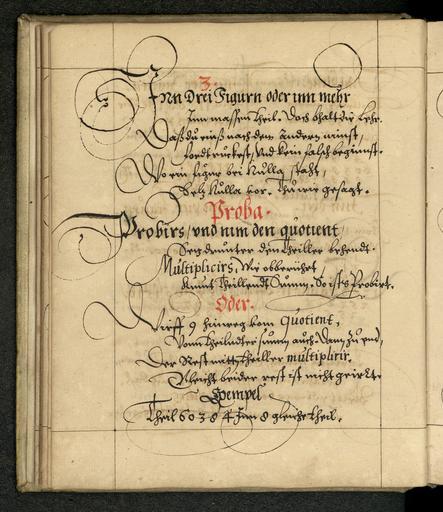 3.
Inn Drei Figurn oder inn mehr
Inn massen theil. Doch bhalt die Lehr.
Daß du einß nach dem andern nimst,
fordt ruckest, Und kein falsch beginnst.
Wo ein figur bei Nulla staht,
Setz Nulla vor. Thu wie gesagt.
Proba.
Probirs / vnd nim den quotient
Setz drunter den theiller behendt.
Multiplicirs, Wie obberührt
kunt theillendt Summ, So ists Probirt.
Oder.
Wirff 9 hinweg vom Quotient,
Vom theilndter summ auch. Dann zu end,
Der Rest mitt theiller multiplicir.
Gleicht beider rest ist nicht geirrt.
Exempel
Theil 60384 Inn 8 gleiche theil.